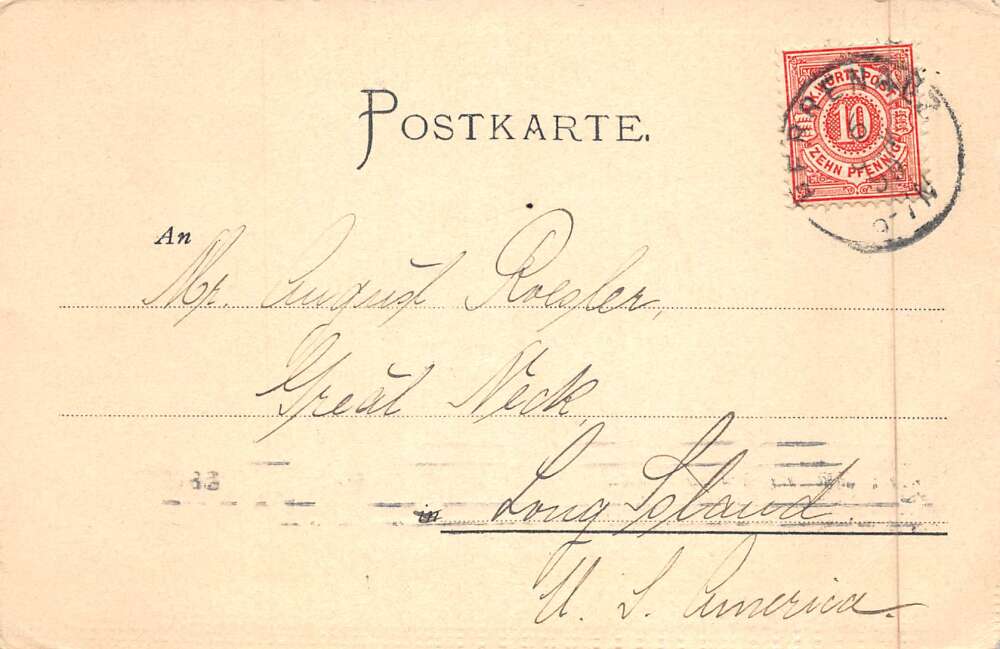 POSTKARTE.
K. WÜRTT. POST
10
ZEHN PFENNIG
An
Mr. August Roesler,
Great Neck,
in Long Island
U. S. America.